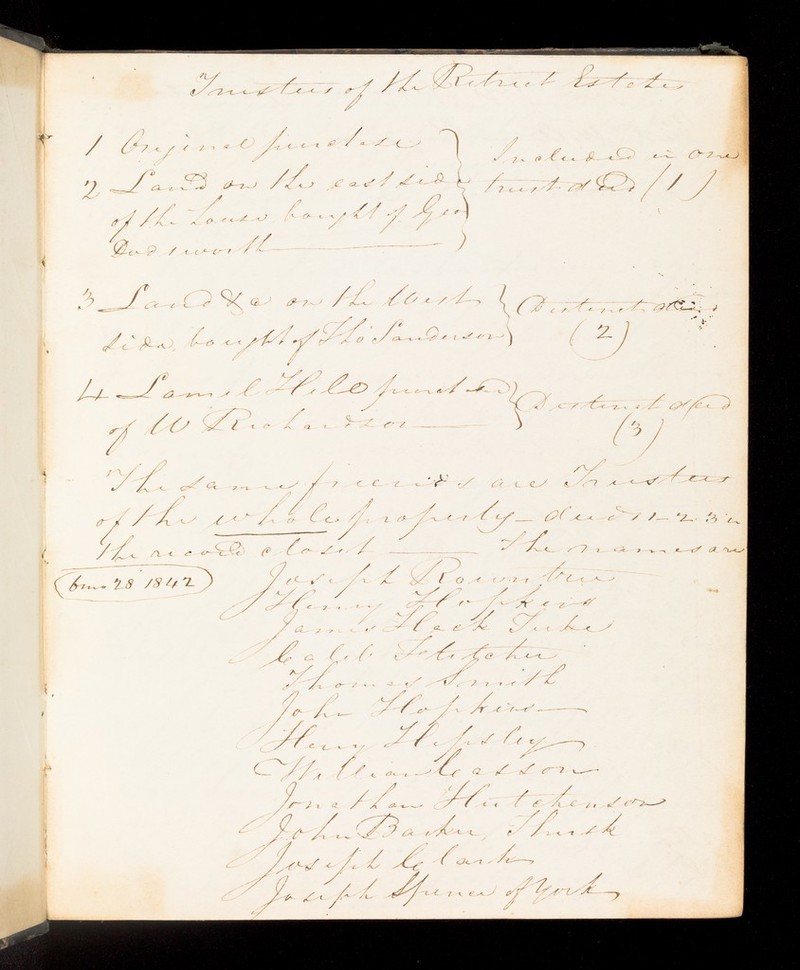 Trustees of the Retreat Estates
1 Original purchase
2 Land on the east side
of the House bought of Geo
Dodsworth
Included in one
trust deed (1)
3 Land &c on the West
side, bought of Tho Sanderson
Distinct deed
(2)
4 Lamel Hill purchased
of W Richardson
Distinct deed
(3)
The same friends are Trustees
of the whole property - deeds 1-2-3 in
the record closet The names are
6 mo 28 1842
Joseph Rowntree
Henry Hopkins
James Hack Tuke
Caleb Fletcher
Thomas Smith
John Hopkins
Henry Hipsley
William Casson
Jonathan Hutchenson
John Barker, Thirsk
Joseph Clark
Joseph Spence of York